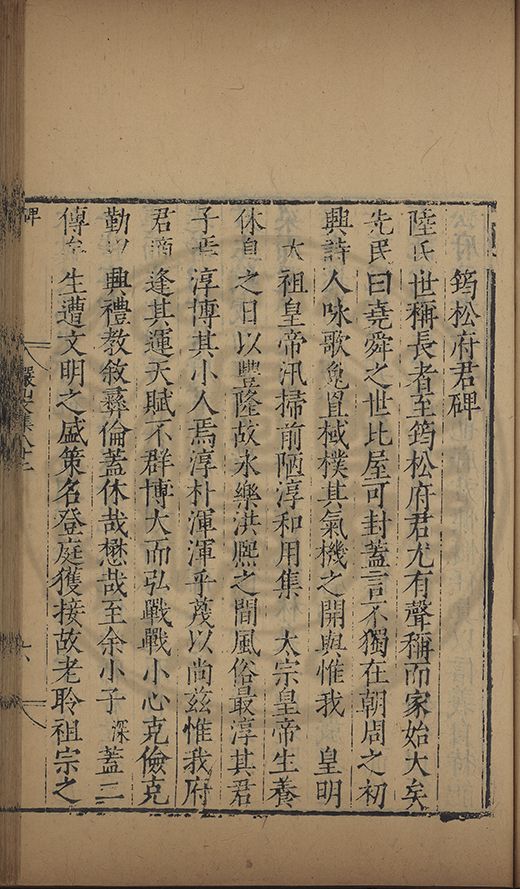 筠松府君碑
陸氏世稱長者至筠松府君尤有聲稱而家始大矣
先民曰堯舜之世比屋可封蓋言不獨在朝周之初
興詩人咏歌兔罝棫樸其氣機之開與惟我 皇明
太祖皇帝汛掃前陋淳和用集 太宗皇帝生養
休息之日以豐隆故永樂洪熈之間風俗最淳其君
子焉淳博其小人焉淳朴渾渾乎蔑以尚茲惟我府
君適逢其運天賦不群博大而弘戰戰小心克儉克
勤以興禮教敘彞倫蓋休哉懋哉至余小子深蓋二
傳矣生遭文明之盛策名登庭獲接故老聆祖宗之
碑
儼山文集卷八十二